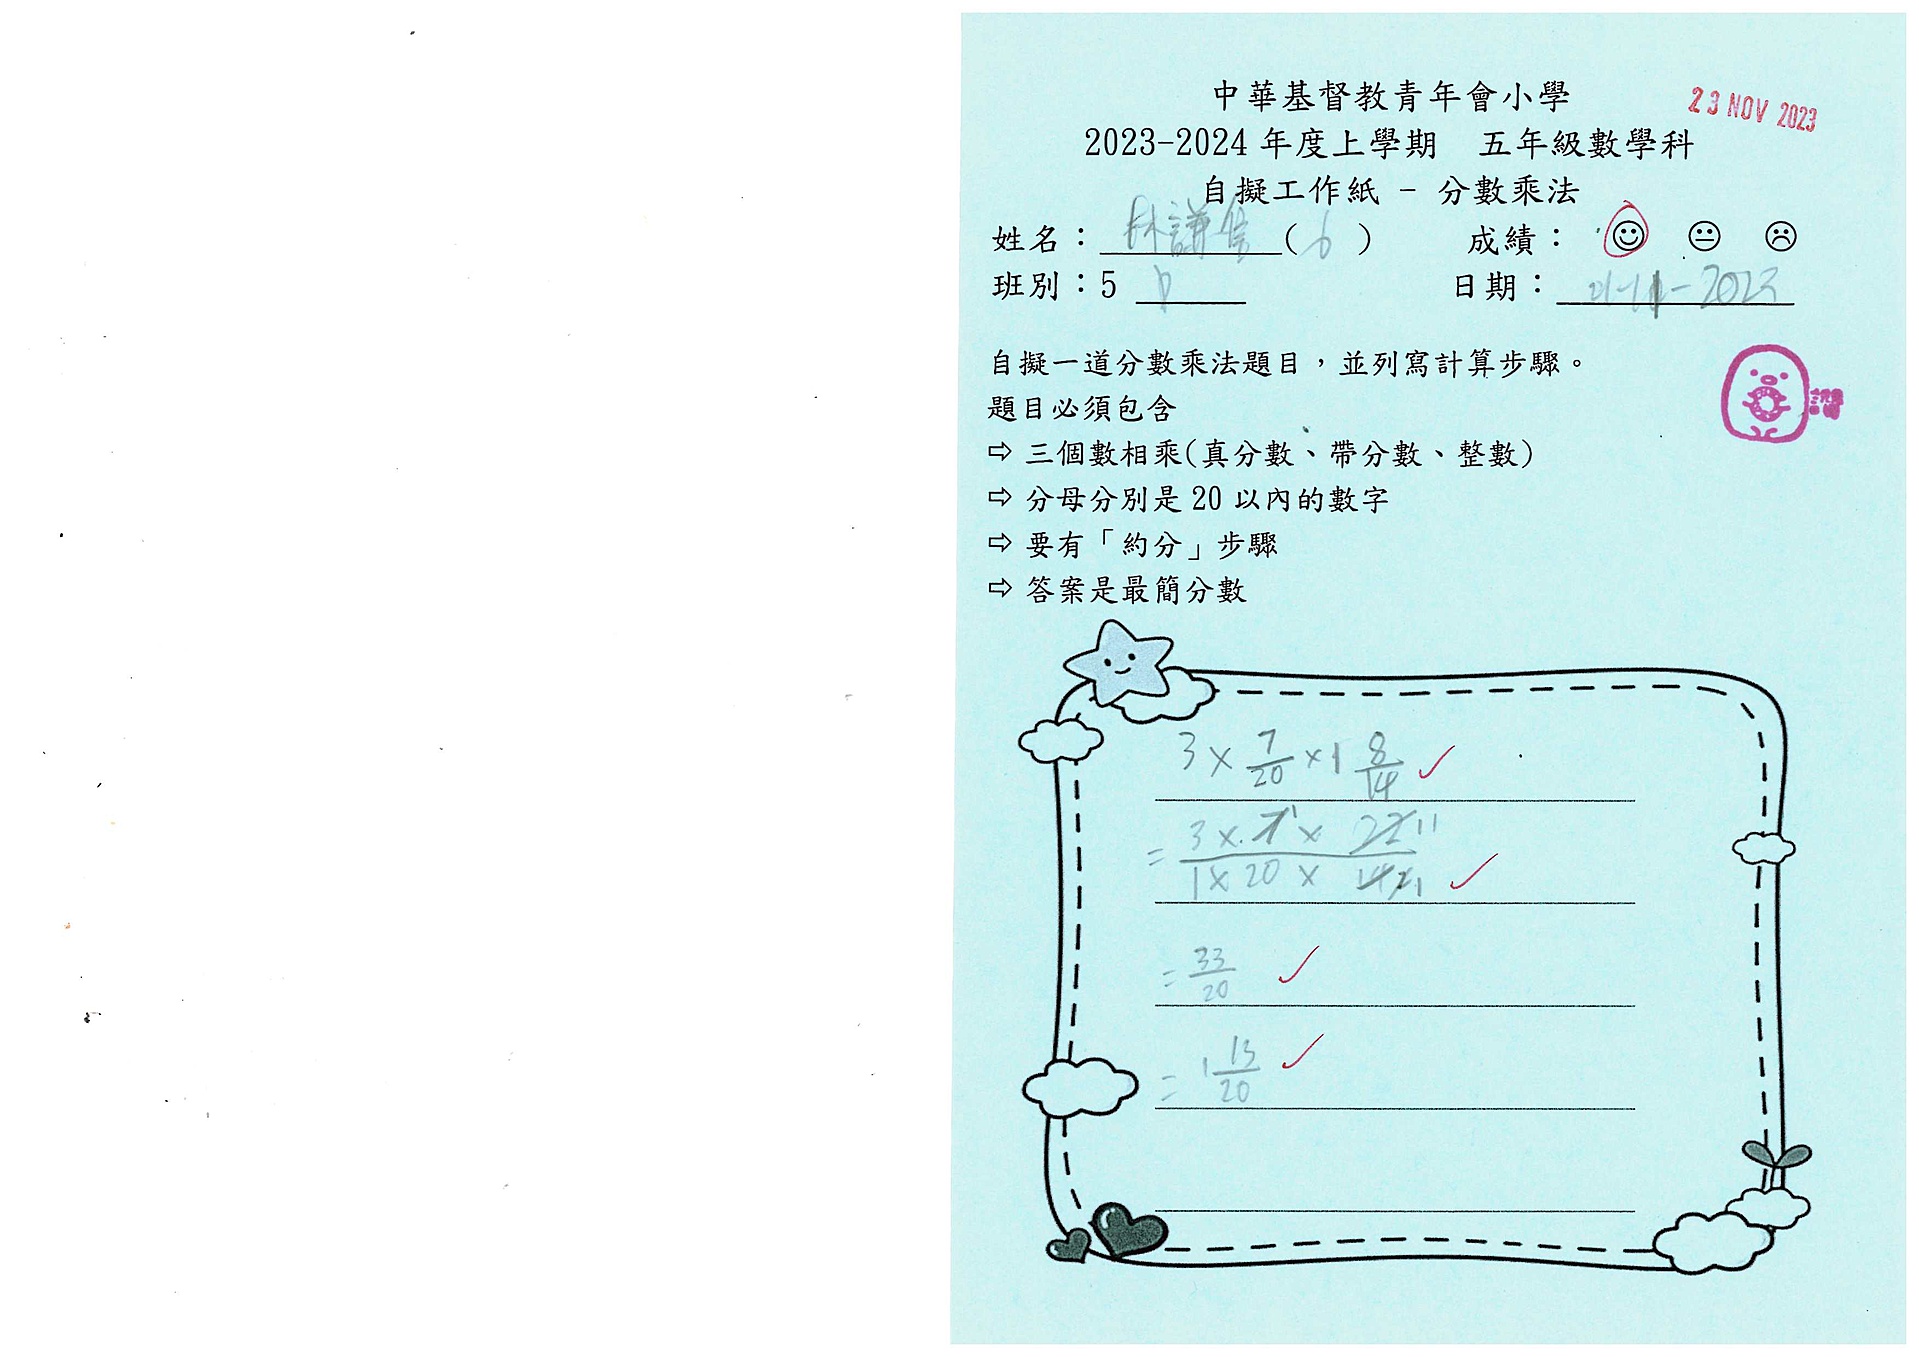 中華基督教青年會小學
23 NOV 2023
2023-2024 年度上學期 五年級數學科
自擬工作紙 - 分數乘法
姓名：林謙信(6) 成績：
班別：5 日期：21-11-2023
自擬一道分數乘法題目，並列寫計算步驟。
題目必須包含
⇨ 三個數相乘(真分數、帶分數、整數)
⇨ 分母分別是 20 以內的數字
⇨ 要有「約分」步驟
⇨ 答案是最簡分數
3 × 7/20 × 1 8/14
= 3 × 7 1 × 22 11
1 × 20 × 14 2 1
= 33/20
= 1 13/20